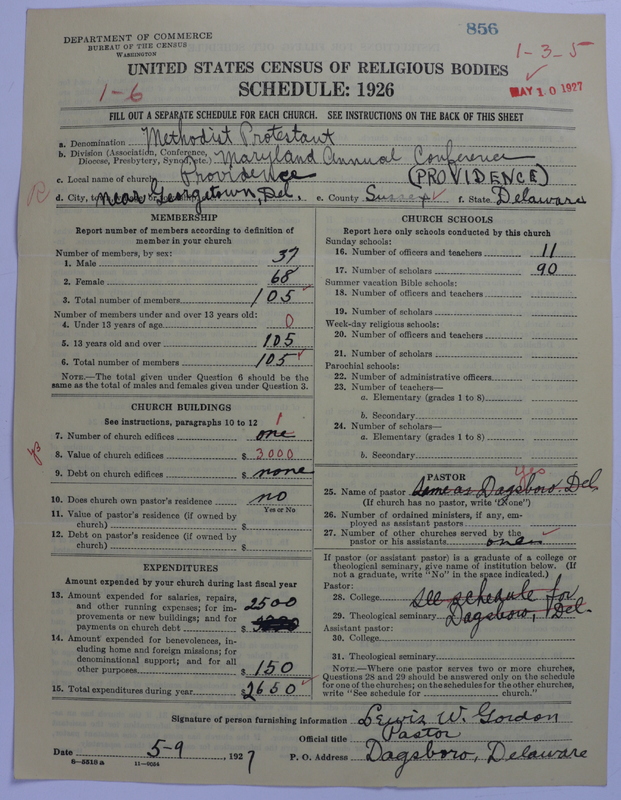 DEPARTMENT OF COMMERCE
BUREAU OF THE CENSUS
WASHINGTON
856
1-3-5
1-6
MAY 10 1927
UNITED STATES CENSUS OF RELIGIOUS BODIES
SCHEDULE: 1926
FILL OUT A SEPARATE SCHEDULE FOR EACH CHURCH. SEE INSTRUCTIONS ON THE BACK OF THIS SHEET
a. Denomination Methodist Protestant
b. Division (Association, Conference, Diocese, Presbytery, Synod, etc.) Maryland Annual Conference
c. Local name of church Providence (PROVIDENCE)
d. City, near Georgetown, Del. e. County Sussex f. State Delaware
MEMBERSHIP
Report number of members according to definition of
member in your church
Number of members, by sex:
1. Male 37
2. Female 68
3. Total number of members 105
Number of members under and over 13 years old:
4. Under 13 years of age 0
5. 13 years old and over 105
6. Total number of members 105
NOTE.—The total given under Question 6 should be the
same as the total of males and females given under Question 3.
CHURCH BUILDINGS
See instructions, paragraphs 10 to 12
7. Number of church edifices one 1
8. Value of church edifices $ 3000
9. Debt on church edifices $ none
10. Does church own pastor's residence no
Yes or No
11. Value of pastor's residence (if owned by
church) $
12. Debt on pastor's residence (if owned by
church) $
EXPENDITURES
Amount expended by your church during last fiscal year
13. Amount expended for salaries, repairs,
and other running expenses; for im-
provements or new buildings; and for
payments on church debt $ 2500
14. Amount expended for benevolences, in-
cluding home and foreign missions; for
denominational support; and for all
other purposes $ 150
15. Total expenditures during year $ 2650
CHURCH SCHOOLS
Report here only schools conducted by this church
Sunday schools:
16. Number of officers and teachers 11
17. Number of scholars 90
Summer vacation Bible schools:
18. Number of officers and teachers
19. Number of scholars
Week-day religious schools:
20. Number of officers and teachers
21. Number of scholars
Parochial schools:
22. Number of administrative officers
23. Number of teachers—
a. Elementary (grades 1 to 8)
b. Secondary
24. Number of scholars—
a. Elementary (grades 1 to 8)
b. Secondary
PASTOR
yes
25. Name of pastor Same as Dagsboro. Del.
(If church has no pastor, write "None")
26. Number of ordained ministers, if any, em-
ployed as assistant pastors
27. Number of other churches served by the
pastor or his assistants one
If pastor (or assistant pastor) is a graduate of a college or
theological seminary, give name of institution below. (If
not a graduate, write "No" in the space indicated.)
Pastor:
28. College See schedule for
29. Theological seminary Dagsboro, Del.
Assistant pastor:
30. College
31. Theological seminary
NOTE.—Where one pastor serves two or more churches,
Questions 28 and 29 should be answered only on the schedule
for one of the churches; on the schedules for the other churches,
write "See schedule for church."
Signature of person furnishing information Lewis W. Gordon
Official title Pastor
Date 5-9 1927 P. O. Address Dagsboro, Delaware
8—5518a 11—9054